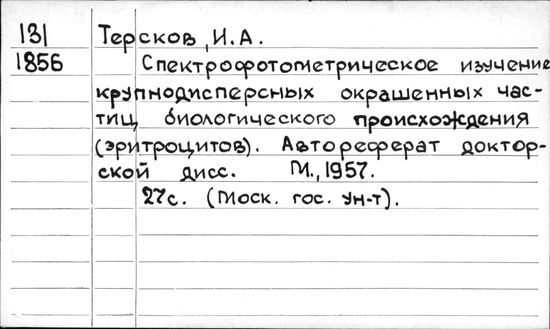 131 Терсков, И.А.
1856 Спектрофотометрическое изучение
крупнодисперсных окрашенных час-
тиц биологического происхождения
(эритроцитов). Автореферат доктор-
ской дисс. М., 1957.
27с. (Моск. гос. ун-т).